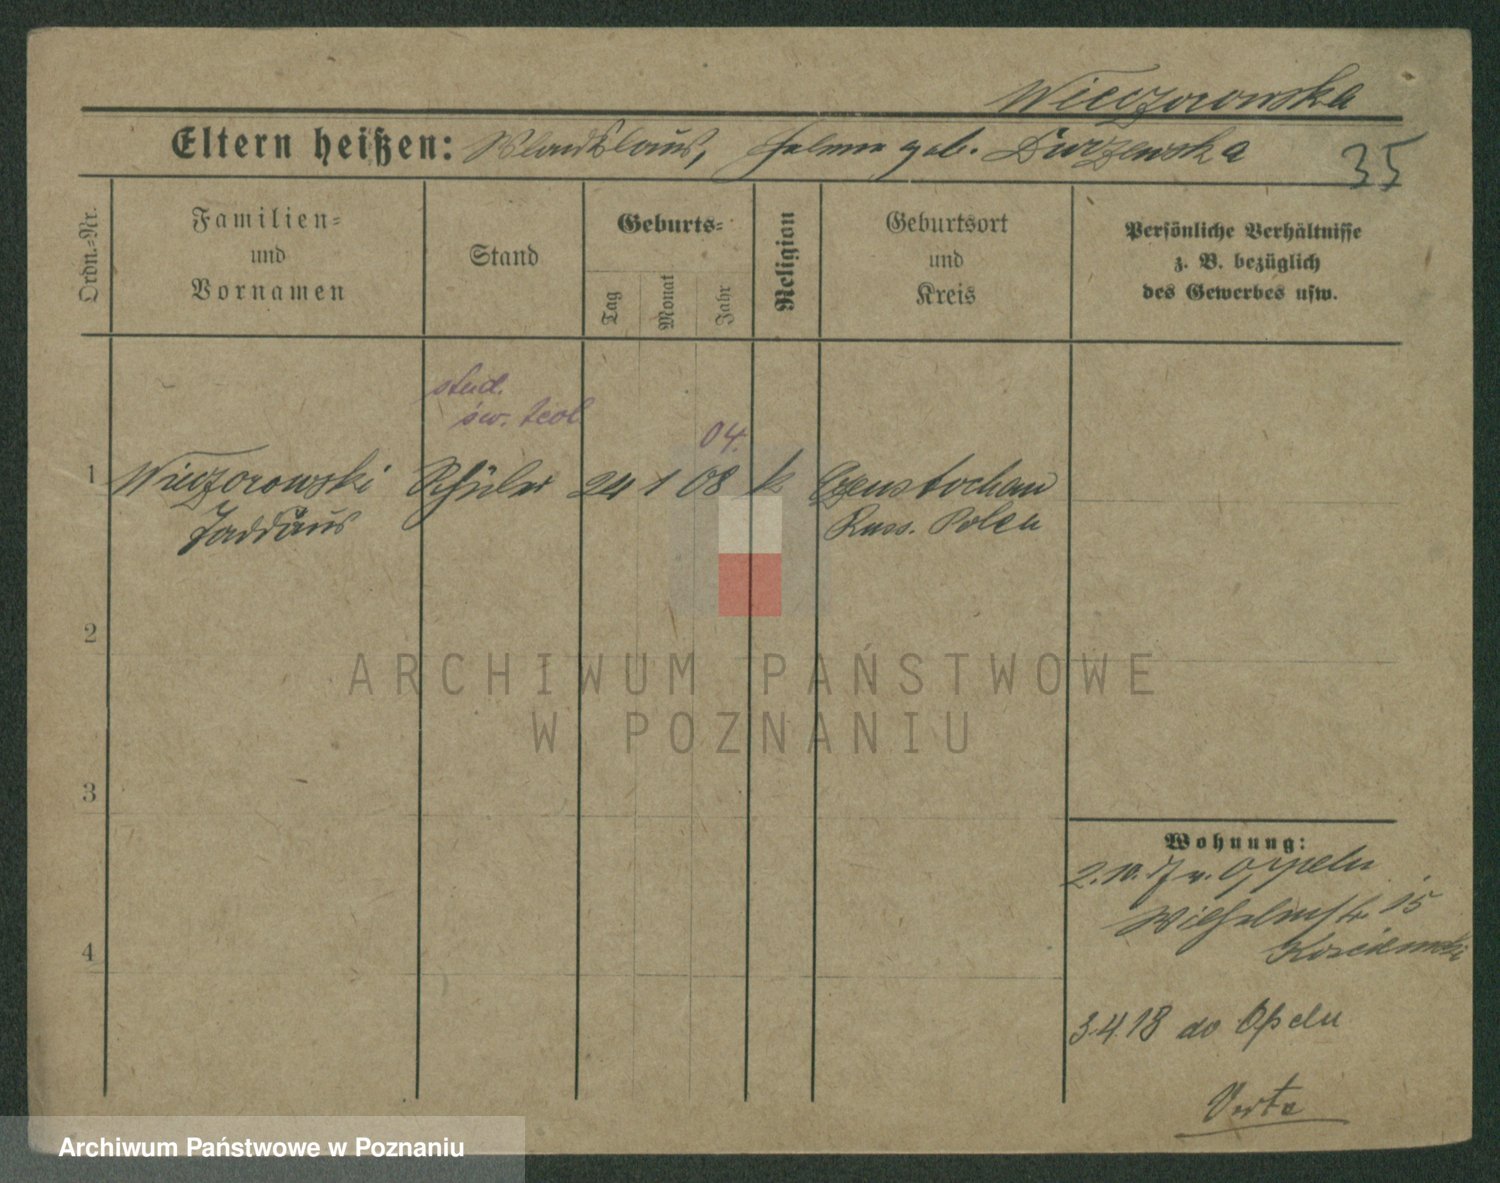 Wieczorowska
Eltern heißen: Wladislaus, Helene geb. Durzewska
35
Ordn.-Nr.
Familien- und Vornamen
Stand
Geburts-
Tag
Monat
Jahr
Religion
Geburtsort und Kreis
Persönliche Verhältnisse
z. B. bezüglich
des Gewerbes usw.
stud.
św. teol
04.
1 Wieczorowski Schüler 24 1 08 k Czenstochau
Taddäus Russ. Polen
2
ARCHIWUM PAŃSTWOWE
W POZNANIU
3
Wohnung:
2.10.17 v. Oppeln
Wilhelmstr. 15
4
3.4.18 do Opeln
Verte
Archiwum Państwowe w Poznaniu